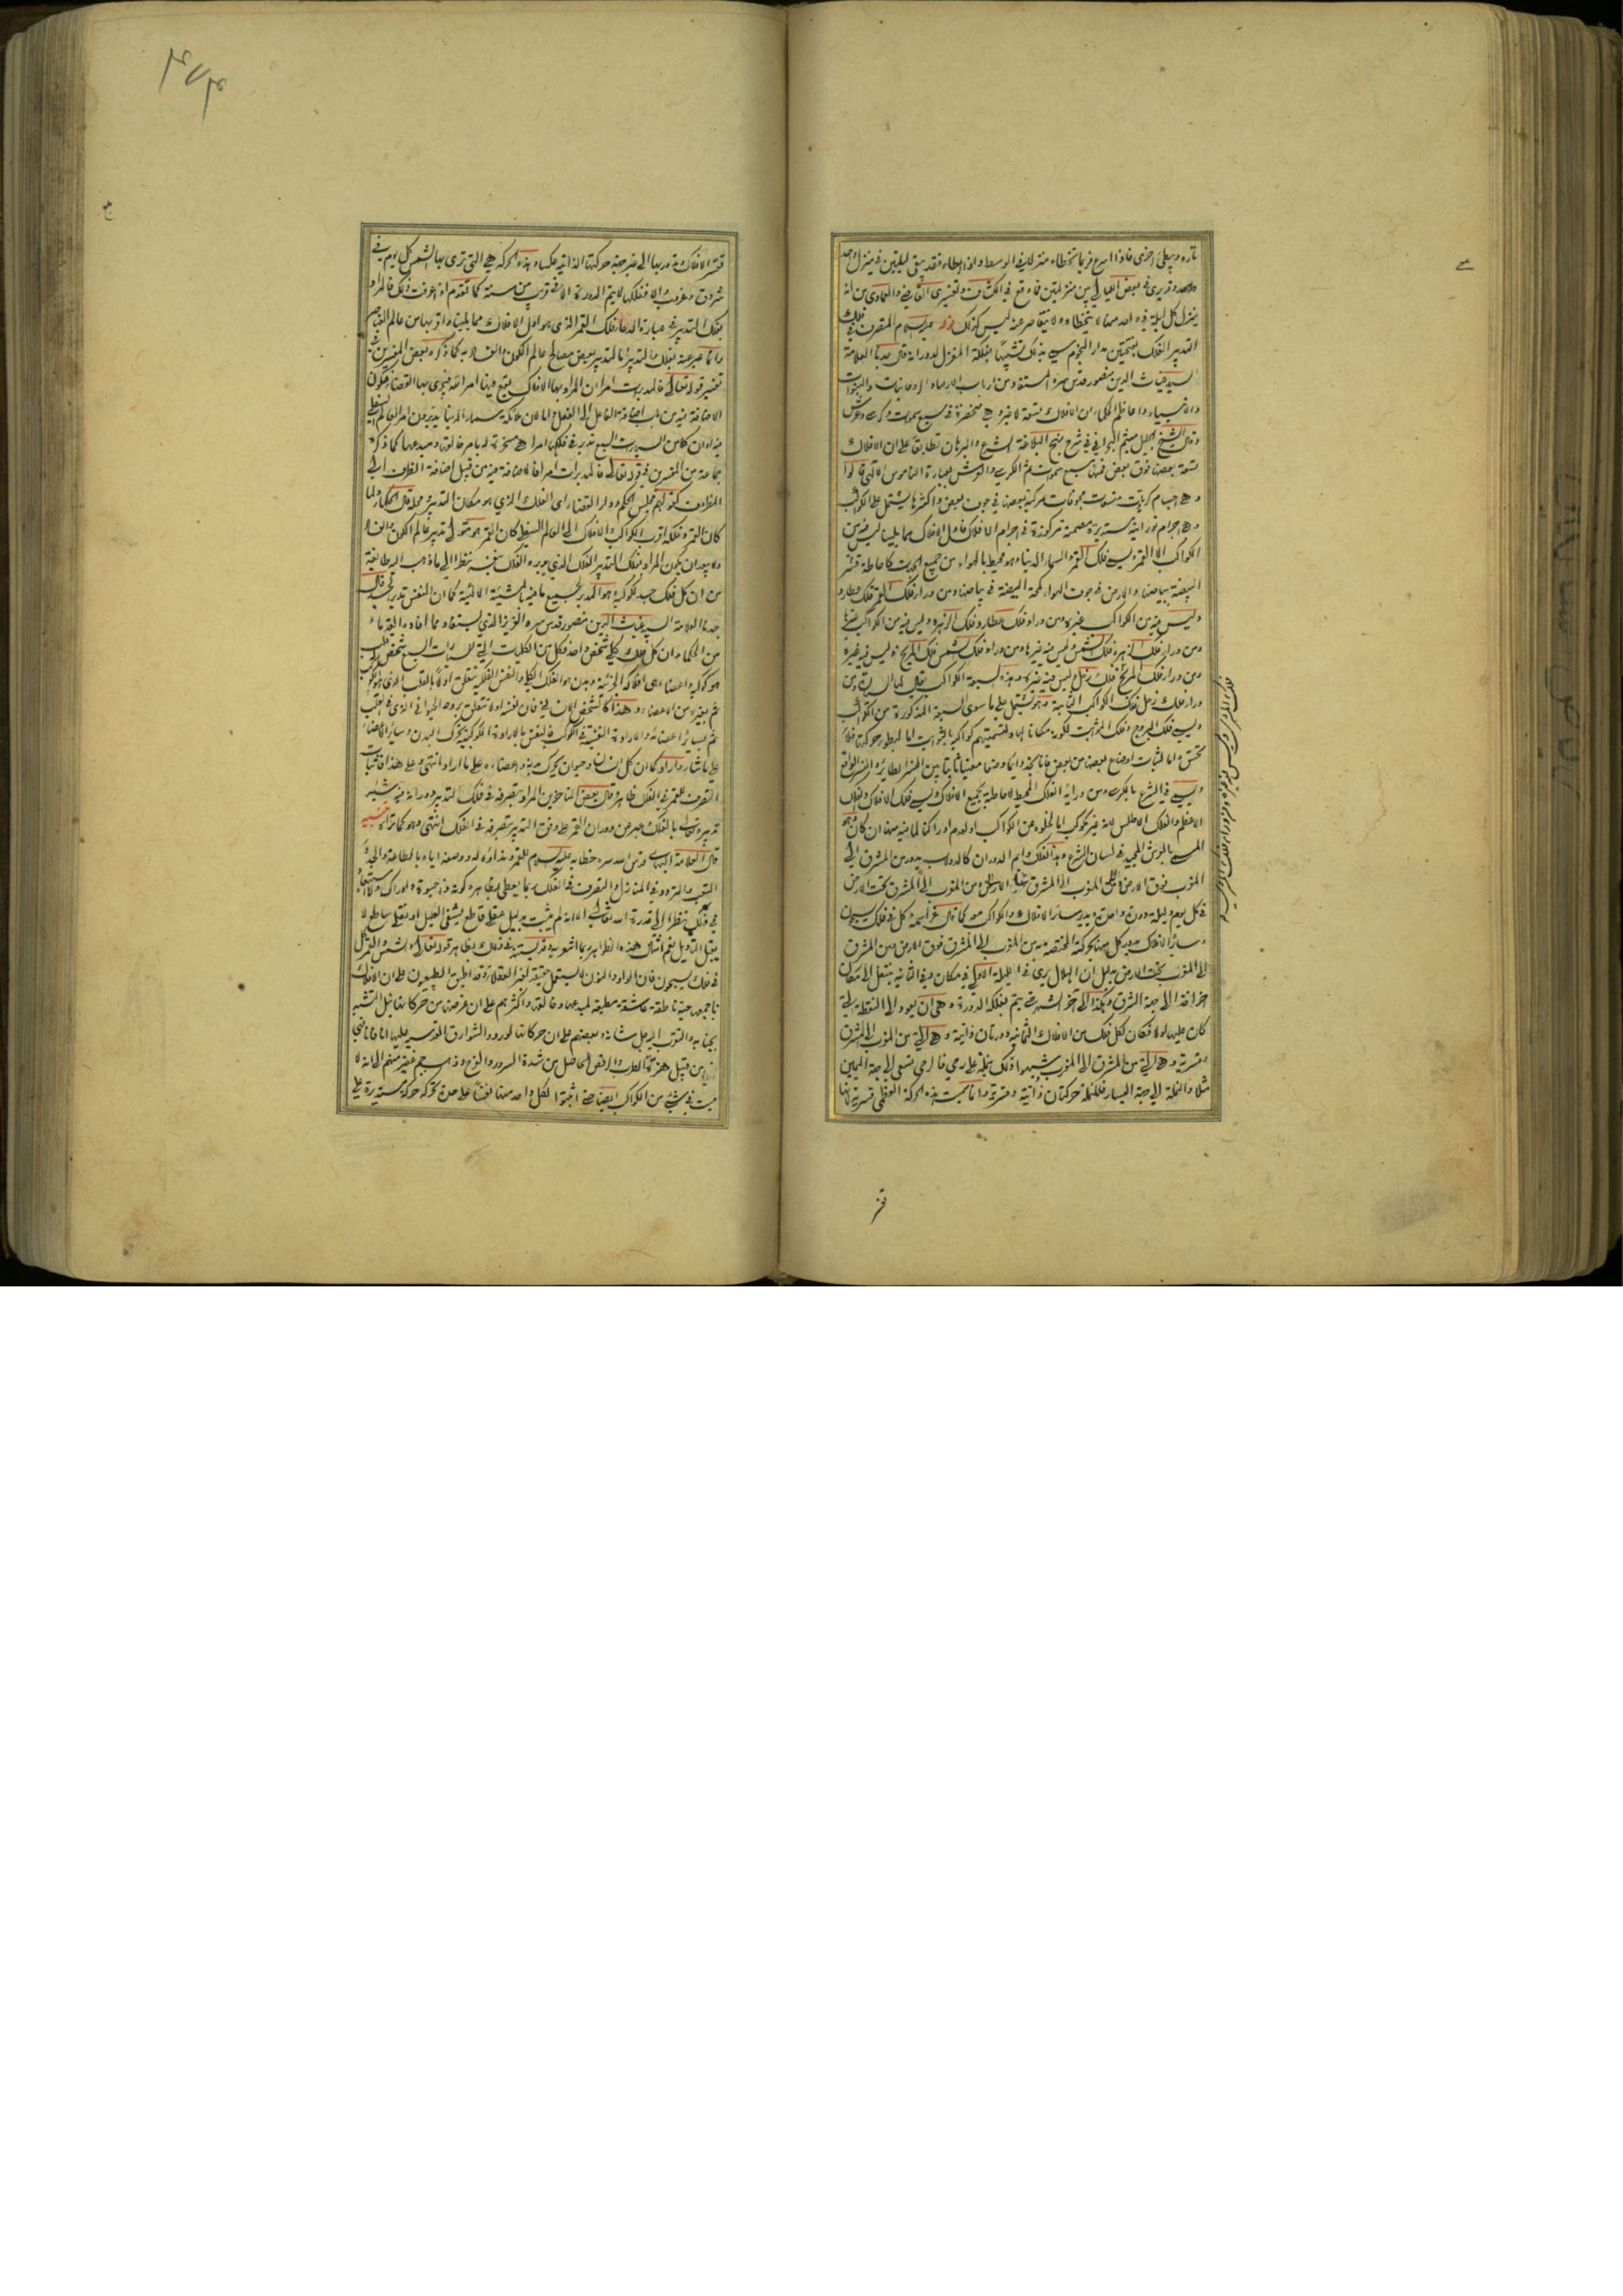 تارة ويبطئ اخرى فاذا اسرع فربما تخطاه منزلا في الوسط واذا ابطاء فقد يبقى ليلتين في منزل واحد
وقد يرى في بعض الليالي بين منزلتين فما وقع في الكشاف وتفسيري القاضي والعمادي من انه
ينزل كل ليلة في واحد منها لا يتخطاه ولا يتقاصر عنه ليس كذلك قوله عليه السلام المتصرف في فلك
التدبير الفلك بفتحتين مدار النجوم سمي بذلك تشبيها بفلكة المغزل لدورانه قال جدنا العلامة
السيد غياث الدين منصور قدس سره المستفاد من ارباب الارصاد الروحانيات والنبوات
والانبياء واعاظم الحكماء ان الافلاك تسعة لا غير وهي منحصرة في سبع سموات وكرسي وعرش
وقال الشيخ الجليل ميثم البحراني في شرح نهج البلاغة الشرع والبرهان تطابقا على ان الافلاك
تسعة بعضها فوق بعض فمنها سبع سموات ثم الكرسي والعرش بعبارة الناموس الالهي قالوا
وهي اجسام كريات مشفات مجوفات مركبة بعضها في جوف بعض واكثرها يشتمل على الكواكب
وهي اجرام نورانية مستديرة مصمتة مركوزة في اجرام الافلاك فاول الافلاك مما يلينا ليس فيه من
الكواكب الا القمر ويسمى فلك القمر والسماء الدنيا وهو محيط بالهواء من جميع الجهات كاحاطة قشر
البيضة ببياضها والارض في جوف الهواء كمحة البيضة في بياضها ومن وراء فلك القمر فلك عطارد
وليس فيه من الكواكب غيره ومن وراء فلك عطارد فلك الزهرة وليس فيه من الكواكب غيرها
ومن وراء فلك الزهرة فلك الشمس وليس فيه غيرها ومن وراء فلك الشمس فلك المريخ وليس فيه غيره
ومن وراء فلك المريخ فلك زحل ليس فيه غيره وهذه السبعة الكواكب يقال لها السيارة ومن
وراء فلك زحل فلك الكواكب الثابتة وهو يشتمل على ما سوى السبعة المذكورة من الكواكب
ويسمى فلك البروج وفلك الثوابت لكونه مكانا لها وتسميتهم كواكبه بالثوابت اما لبطؤ حركتها فلا
تحس واما لثبات اوضاع بعضها من بعض فانا نجد دائما وضعا معينا ثابتا بين النسر الطاير والنسر الواقع
ويسمى في الشرع بالكرسي ومن ورائه الفلك المحيط لاحاطته بجميع الافلاك ويسمى فلك الافلاك والفلك
الاعظم والفلك الاطلس لانه غير مكوكب اما لخلوه عن الكواكب او لعدم ادراكنا لما فيه منها ان كان وهو
المسمى بالعرش المجيد في لسان الشرع وهذا الفلك دايم الدوران كالدولاب يدور من المشرق الى
المغرب فوق الارض ومن المغرب الى المشرق تحت الارض
في كل يوم وليلة دورة واحدة ويدير سائر الافلاك والكواكب معه كما قال عز اسمه وكل في فلك يسبحون
وسائر الافلاك يدور كل منها بحركته المختصة به من المغرب الى المشرق فوق الارض ومن المشرق
الى المغرب تحت الارض بدليل ان الهلال يرى في الليلة الاولى في مكان وفي الثانية ينتقل الى مكان
اخر اقرب الى جهة الشرق وهكذا الى اخر الشهر حتى يتم بفلكه الدورة وهي ان يعود الى النقطة التي
كان عليها اولا فكان لكل فلك من الافلاك الثمانية دورتان ذاتية وهي التي من المغرب الى المشرق
وقسرية وهي التي من المشرق الى المغرب شبهوا ذلك بنملة على رحى فالرحى تسعى الى جهة اليمين
مثلا والنملة الى جهة اليسار فللنملة حركتان ذاتية وقسرية وانما سميت هذه الحركة العظمى قسرية لانها
تقسر
تقسر الافلاك وتديرها الى غير جهة حركتها الذاتية عكسا وهذه الحركة هي التي ترى بها الشمس كل يوم في
شروق وغروب والا ففلكها لا يتم الدورة الا في قريب من سنة كما تقدم اذا عرفت ذلك فالمراد
بفلك التدبير في عبارة الدعا فلك القمر الذي هو اول الافلاك مما يلينا واقربها من عالم العناصر
وانما عبر عنه بفلك التدبير اما لتدبير بعض مصالح عالم الكون والفساد به كما ذكره بعض المفسرين في
تفسير قوله تعالى فالمدبرات امرا ان المراد بها الافلاك
الاضافة فيه من باب اضافة الفاعل الى الفعل واما لان ملائكة سماء الدنيا يدبرون امر العالم السفلي
فيه او ان كلا من السيارات السبع تدبر في فلكها امرا هي مسخرة له بامر خالقها ومبدعها كما ذكره
جماعة من المفسرين في قوله تعالى فالمدبرات امرا فالاضافة فيه من قبيل اضافة الظرف الى
المظروف كقولهم مجلس الحكم ودار القضاء اي الفلك الذي هو مكان التدبير ومحله قال الحكماء ولما
كان القمر وفلكه اقرب الكواكب والافلاك الى العالم السفلي كان القمر هو متولي تدبير عالم الكون والفساد
ولا يبعد ان يكون المراد بفلك التدبير الفلك الذي يدبره الفلك نفسه نظرا الى ما ذهب اليه طائفة
من ان كل فلك جسد لكوكبه وهو المدبر لجميع ما فيه بالمشيئة الالهية كما ان النفس تدبر الجسد قال
جدنا العلامة السيد غياث الدين منصور قدس سره العزيز الذي يستفاد مما افاده القدماء
من الحكماء ان كل فلك كلي شخص واحد فكل من الكليات التي للسيارات السبع شخص له قلب
هو كوكبه واعضاء هي افلاكه الجزئية وبدن هو الفلك الكلي والنفس الفلكية تتعلق اولا بالقلب الذي هو الكوكب
ثم بغيره من الاعضاء وهذا كالشخص الانساني فان نفسه اولا تتعلق بروحه الحيواني الذي في القلب
ثم بسائر اعضائه والارادة النفسية في الكوكب فالنفس بالارادة الكوكبية تحرك البدن وسائر الاعضاء
على ما شاء واراد كما ان كل انسان وحيوان يحرك بدنه واعضاءه على ما اراد انتهى وعلى هذا فاثبات
التصرف للقمر في الفلك ظاهر وقال بعض المتاخرين المراد بتصرفه في فلك التدبير دورانه فيه شبه
تدبيره تعالى بالفلك عبر عن دوران القمر على وفق التدبير بتصرفه في الفلك انتهى وهو كما ترى تنبيه
قال العلامة البهائي قدس الله سره خطابه عليه السلام للقمر ونداؤه له ووصفه اياه بالطاعة والجد و
التعب والتردد في المنازل والتصرف في الفلك ربما يعطي بظاهره كونه ذا حيوة وادراك ولا استبعاد
في ذلك نظرا الى قدرة الله تعالى الا انه لم يثبت بدليل عقلي قاطع يشفي العليل او نقلي ساطع لا
يقبل التاويل نعم امثال هذه الظواهر ربما اشعرت به وقد يستند في ذلك بظاهر قوله تعالى والشمس والقمر كل
في فلك يسبحون فان الواو والنون لا يستعمل حقيقة لغير العقلاء وقد اطبق الطبيعيون على ان الافلاك
باجمعها حية ناطقة عاشقة مطيعة لمبدعها وخالقها واكثرهم على ان غرضها من حركاتها نيل التشبه
بجنابه والتقرب اليه جل شانه وبعضهم على ان حركاتها لورود الشوارق القدسية عليها انا فانا فهي
من قبيل هزة الطرب والرقص الحاصل من شدة السرور والفرح وذهب جم غفير منهم الى انه لا
ميت في شيء من الكواكب ايضا حتى اثبتوا لكل واحد منها نفسا على حدة تحركه حركة مستديرة على